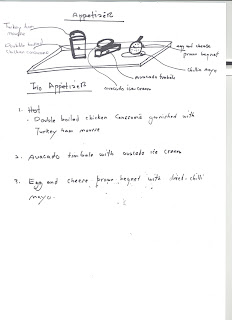 Appetizer
Turkey ham
mousse
Double boiled
chicken consommé
egg and cheese
prawn beignet
chilli mayo
avocado timbale
avocado ice cream
Trio Appetizer
1. Hot
- Double boiled chicken consommé garnished with
Turkey ham mousse
2. Avocado timbale with avocado ice cream
3. Egg and cheese prawn begnet with dried-chilli
mayo.